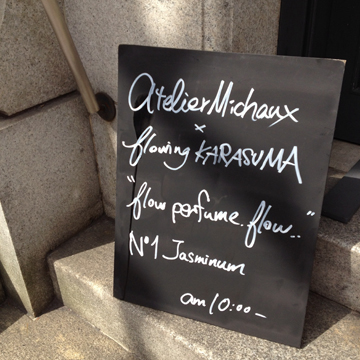 Atelier Michaux
×
flowing KARASUMA
"flow perfume. flow.."
N°1 Jasminum
am 10:00–